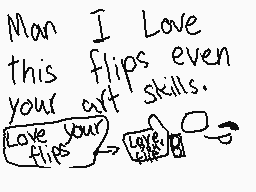 Man I Love
this flips even
your art skills.
Love your
flips
Love